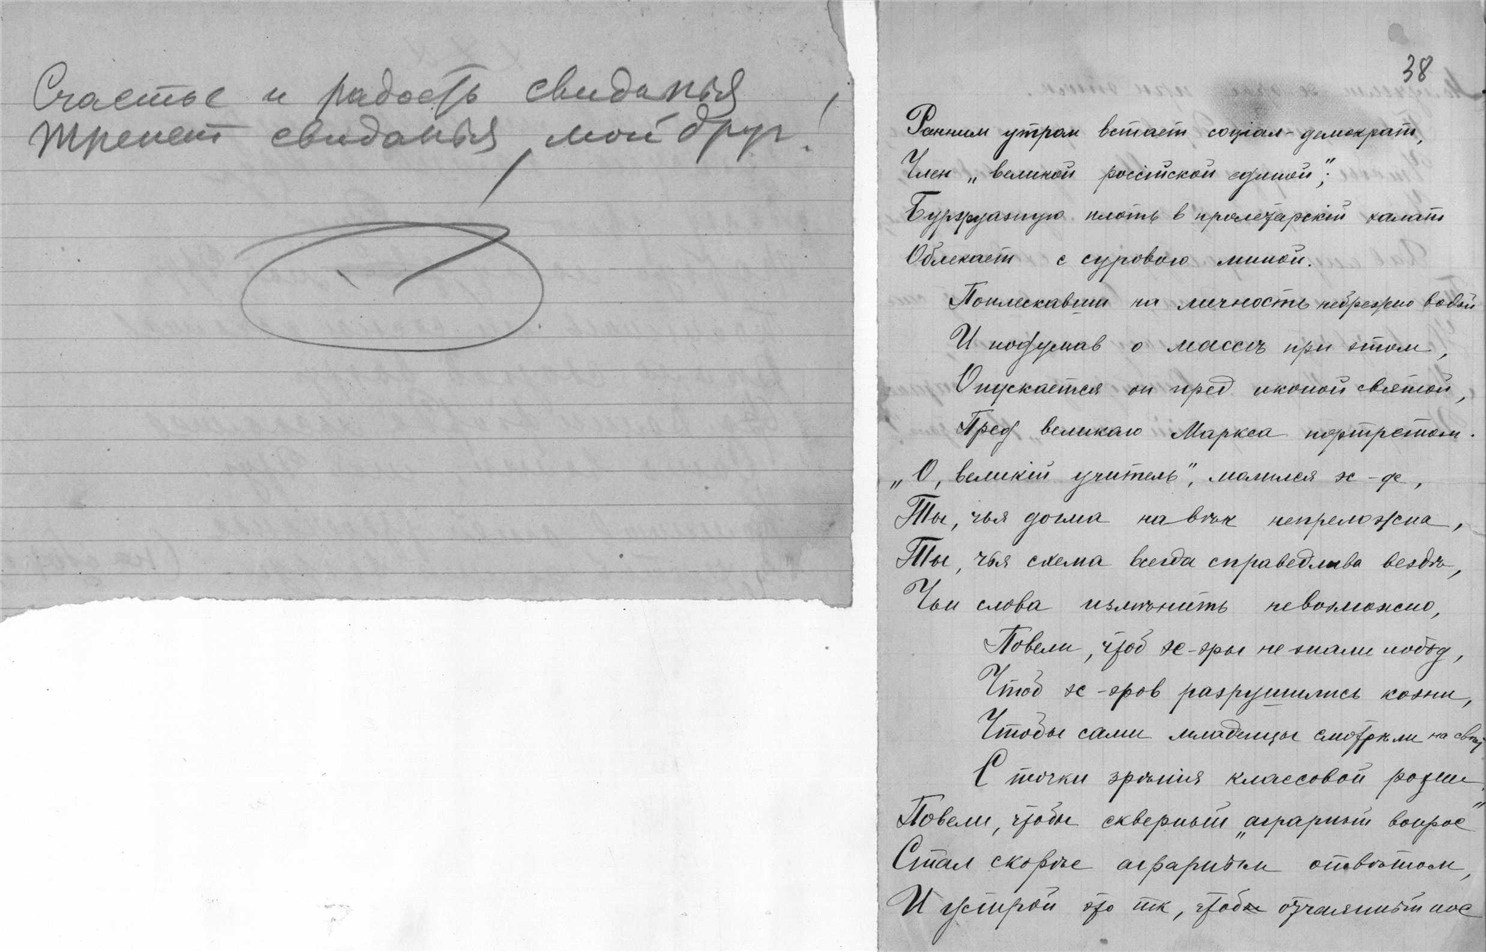 Счастье и радость свиданья,
Трепет свиданья, мой друг!
38
Ранним утром встает социал-демократ,
Член „великой россійской единой“;
Буржуазную плоть в пролетарскій халат
Облекает с суровою миной.
Поплескавши на личность небрежно водой
И подумав о массѣ при этом,
Опускается он пред иконой святой,
Пред великаго Маркса портретом.
„О, великій учитель“, молился эс-де,
Ты, чья догма на вѣк непреложна,
Ты, чья схема всегда справедлива вездѣ,
Чьи слова измѣнить невозможно,
Повели, чтоб эс-эры не знали побѣд,
Чтоб эс-эров разрушились козни,
Чтобы сами младенцы смотрѣли на свѣт
С точки зрѣнія классовой розни.
Повели, чтобы скверный „аграрный вопрос“
Стал скорѣе аграрным отвѣтом,
И устрой это так, чтобы отчаянный нос